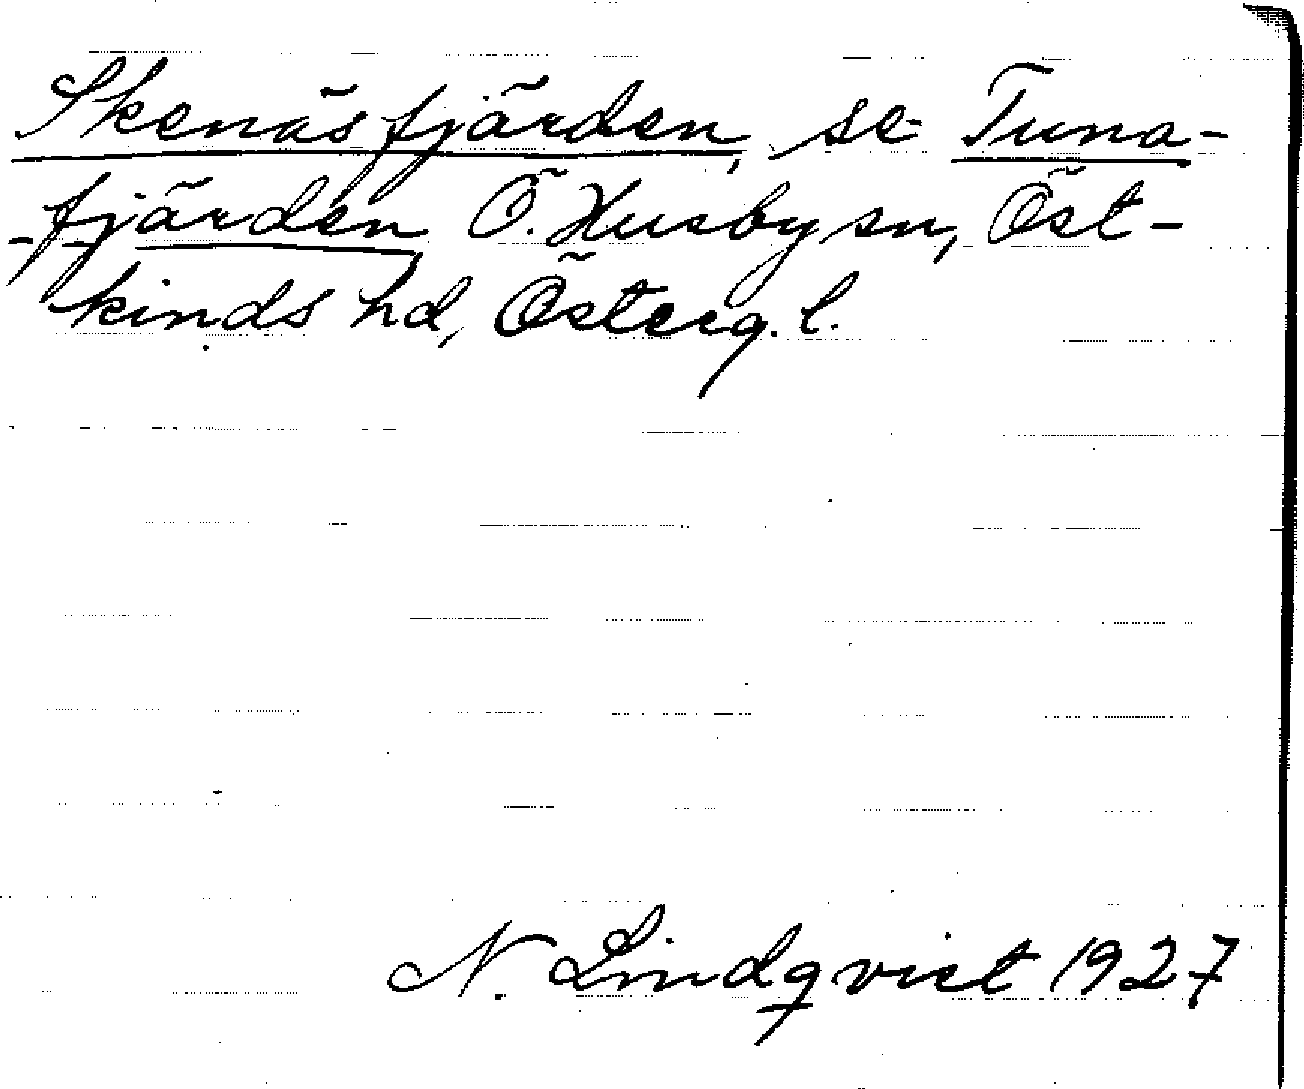 Skenäsfjärden, se Tuna-
-fjärden Ö. Husby sn, Öst-
kinds hd, Österg. l.
N. Lindqvist 1927